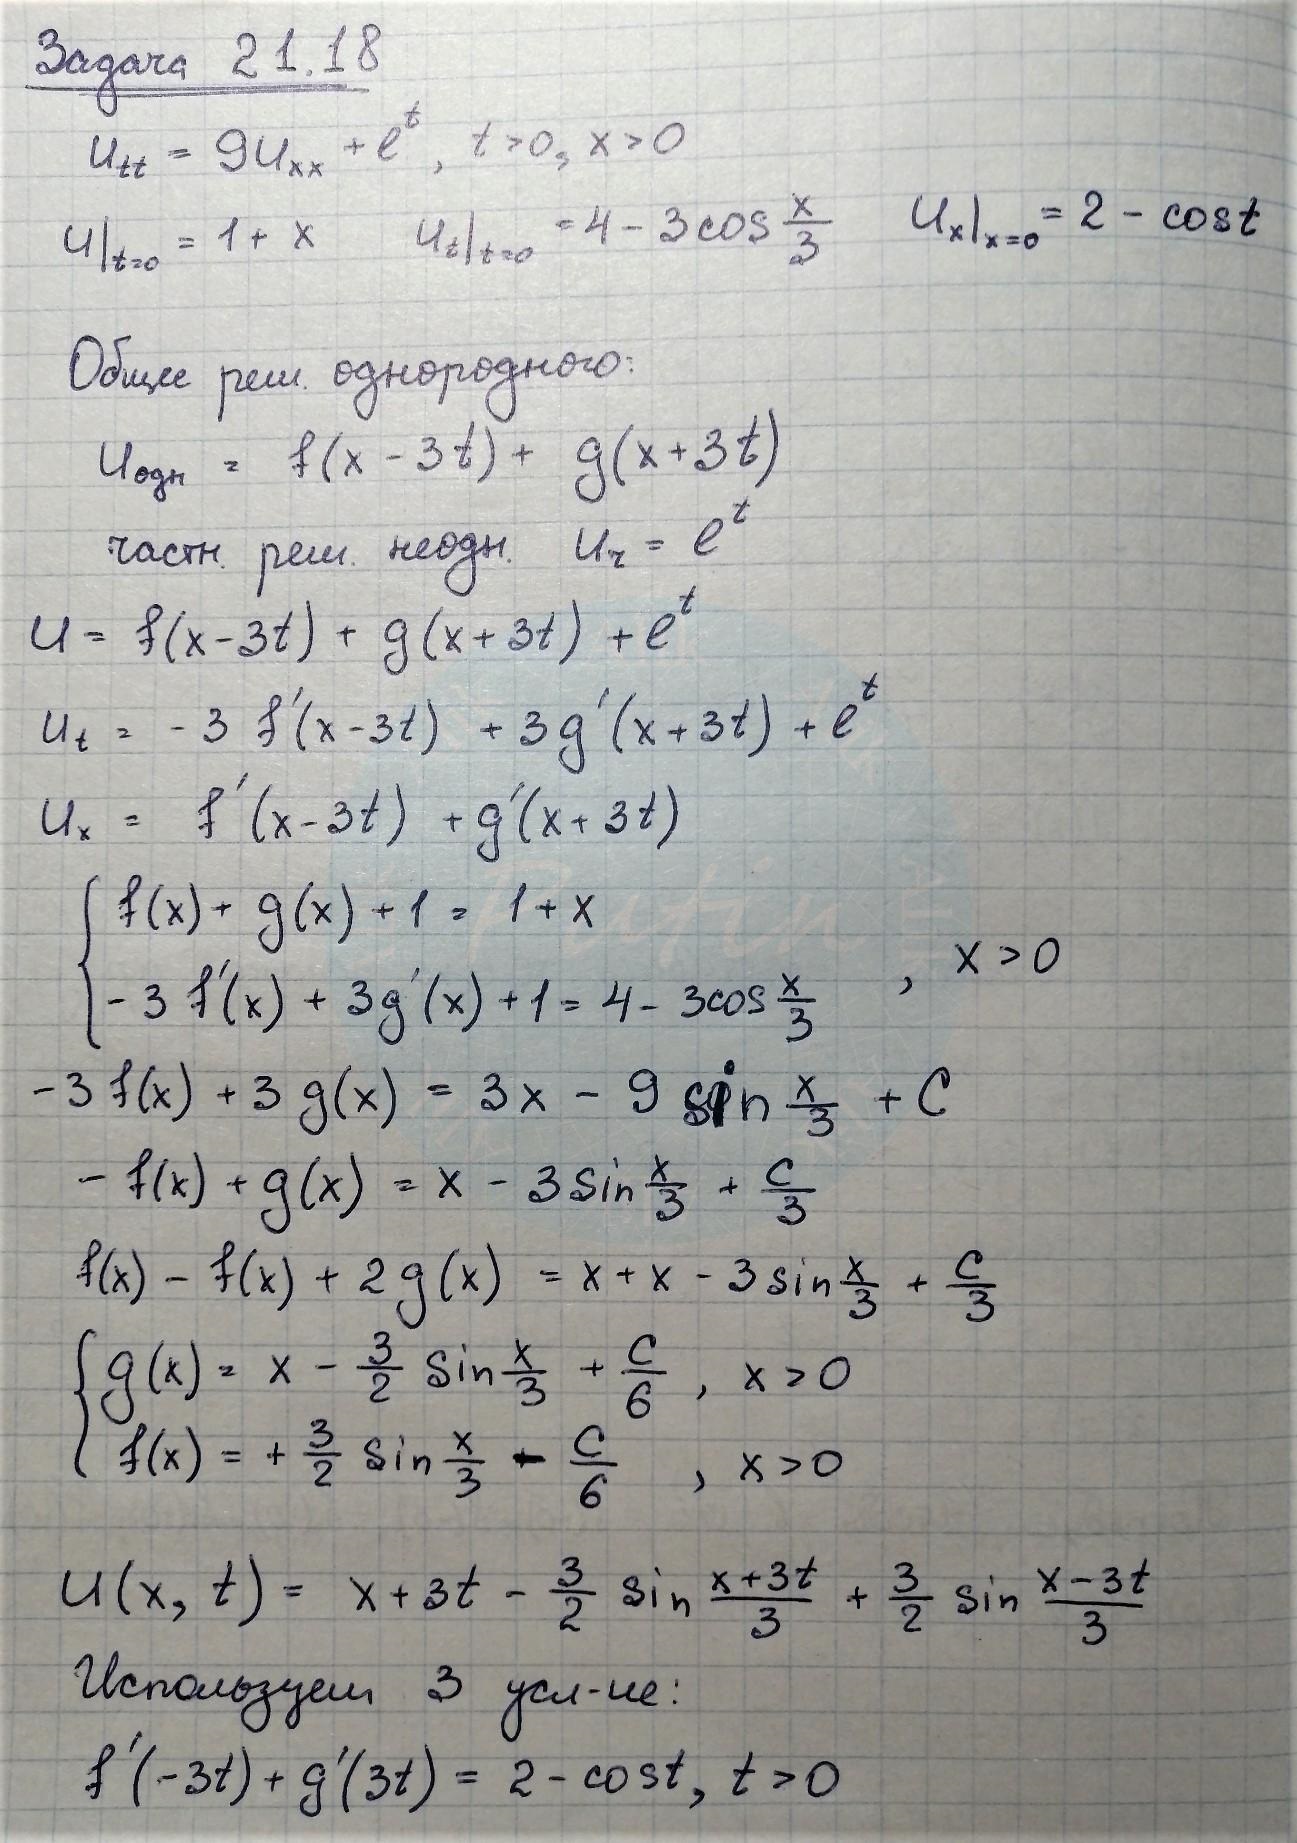 Задача 21.18
u_tt = 9u_xx + e^t, t>0, x>0
u|_t=0 = 1 + x u_t|_t=0 = 4 - 3cos x/3 u_x|_x=0 = 2 - cost
Общее реш. однородного:
u_одн = f(x - 3t) + g(x+3t)
частн. реш. неодн. u_ч = e^t
u = f(x-3t) + g(x+3t) + e^t
u_t = -3 f'(x-3t) + 3g'(x+3t) + e^t
u_x = f'(x-3t) + g'(x+3t)
f(x) + g(x) + 1 = 1 + x
-3 f'(x) + 3g'(x) + 1 = 4 - 3cos x/3 , x > 0
-3 f(x) + 3 g(x) = 3x - 9 sin x/3 + C
- f(x) + g(x) = x - 3 sin x/3 + C/3
f(x) - f(x) + 2g(x) = x + x - 3 sin x/3 + C/3
g(x) = x - 3/2 sin x/3 + C/6 , x > 0
f(x) = + 3/2 sin x/3 - C/6 , x > 0
u(x, t) = x + 3t - 3/2 sin x+3t/3 + 3/2 sin x-3t/3
Используем 3 усл-ие:
f'(-3t) + g'(3t) = 2 - cost, t > 0
Putin